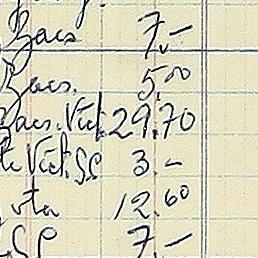 Bacs 7.—
Bacs. 5.00
Bacs. Vict. 29.70
Vict. SS 3.—
12.60
7.—